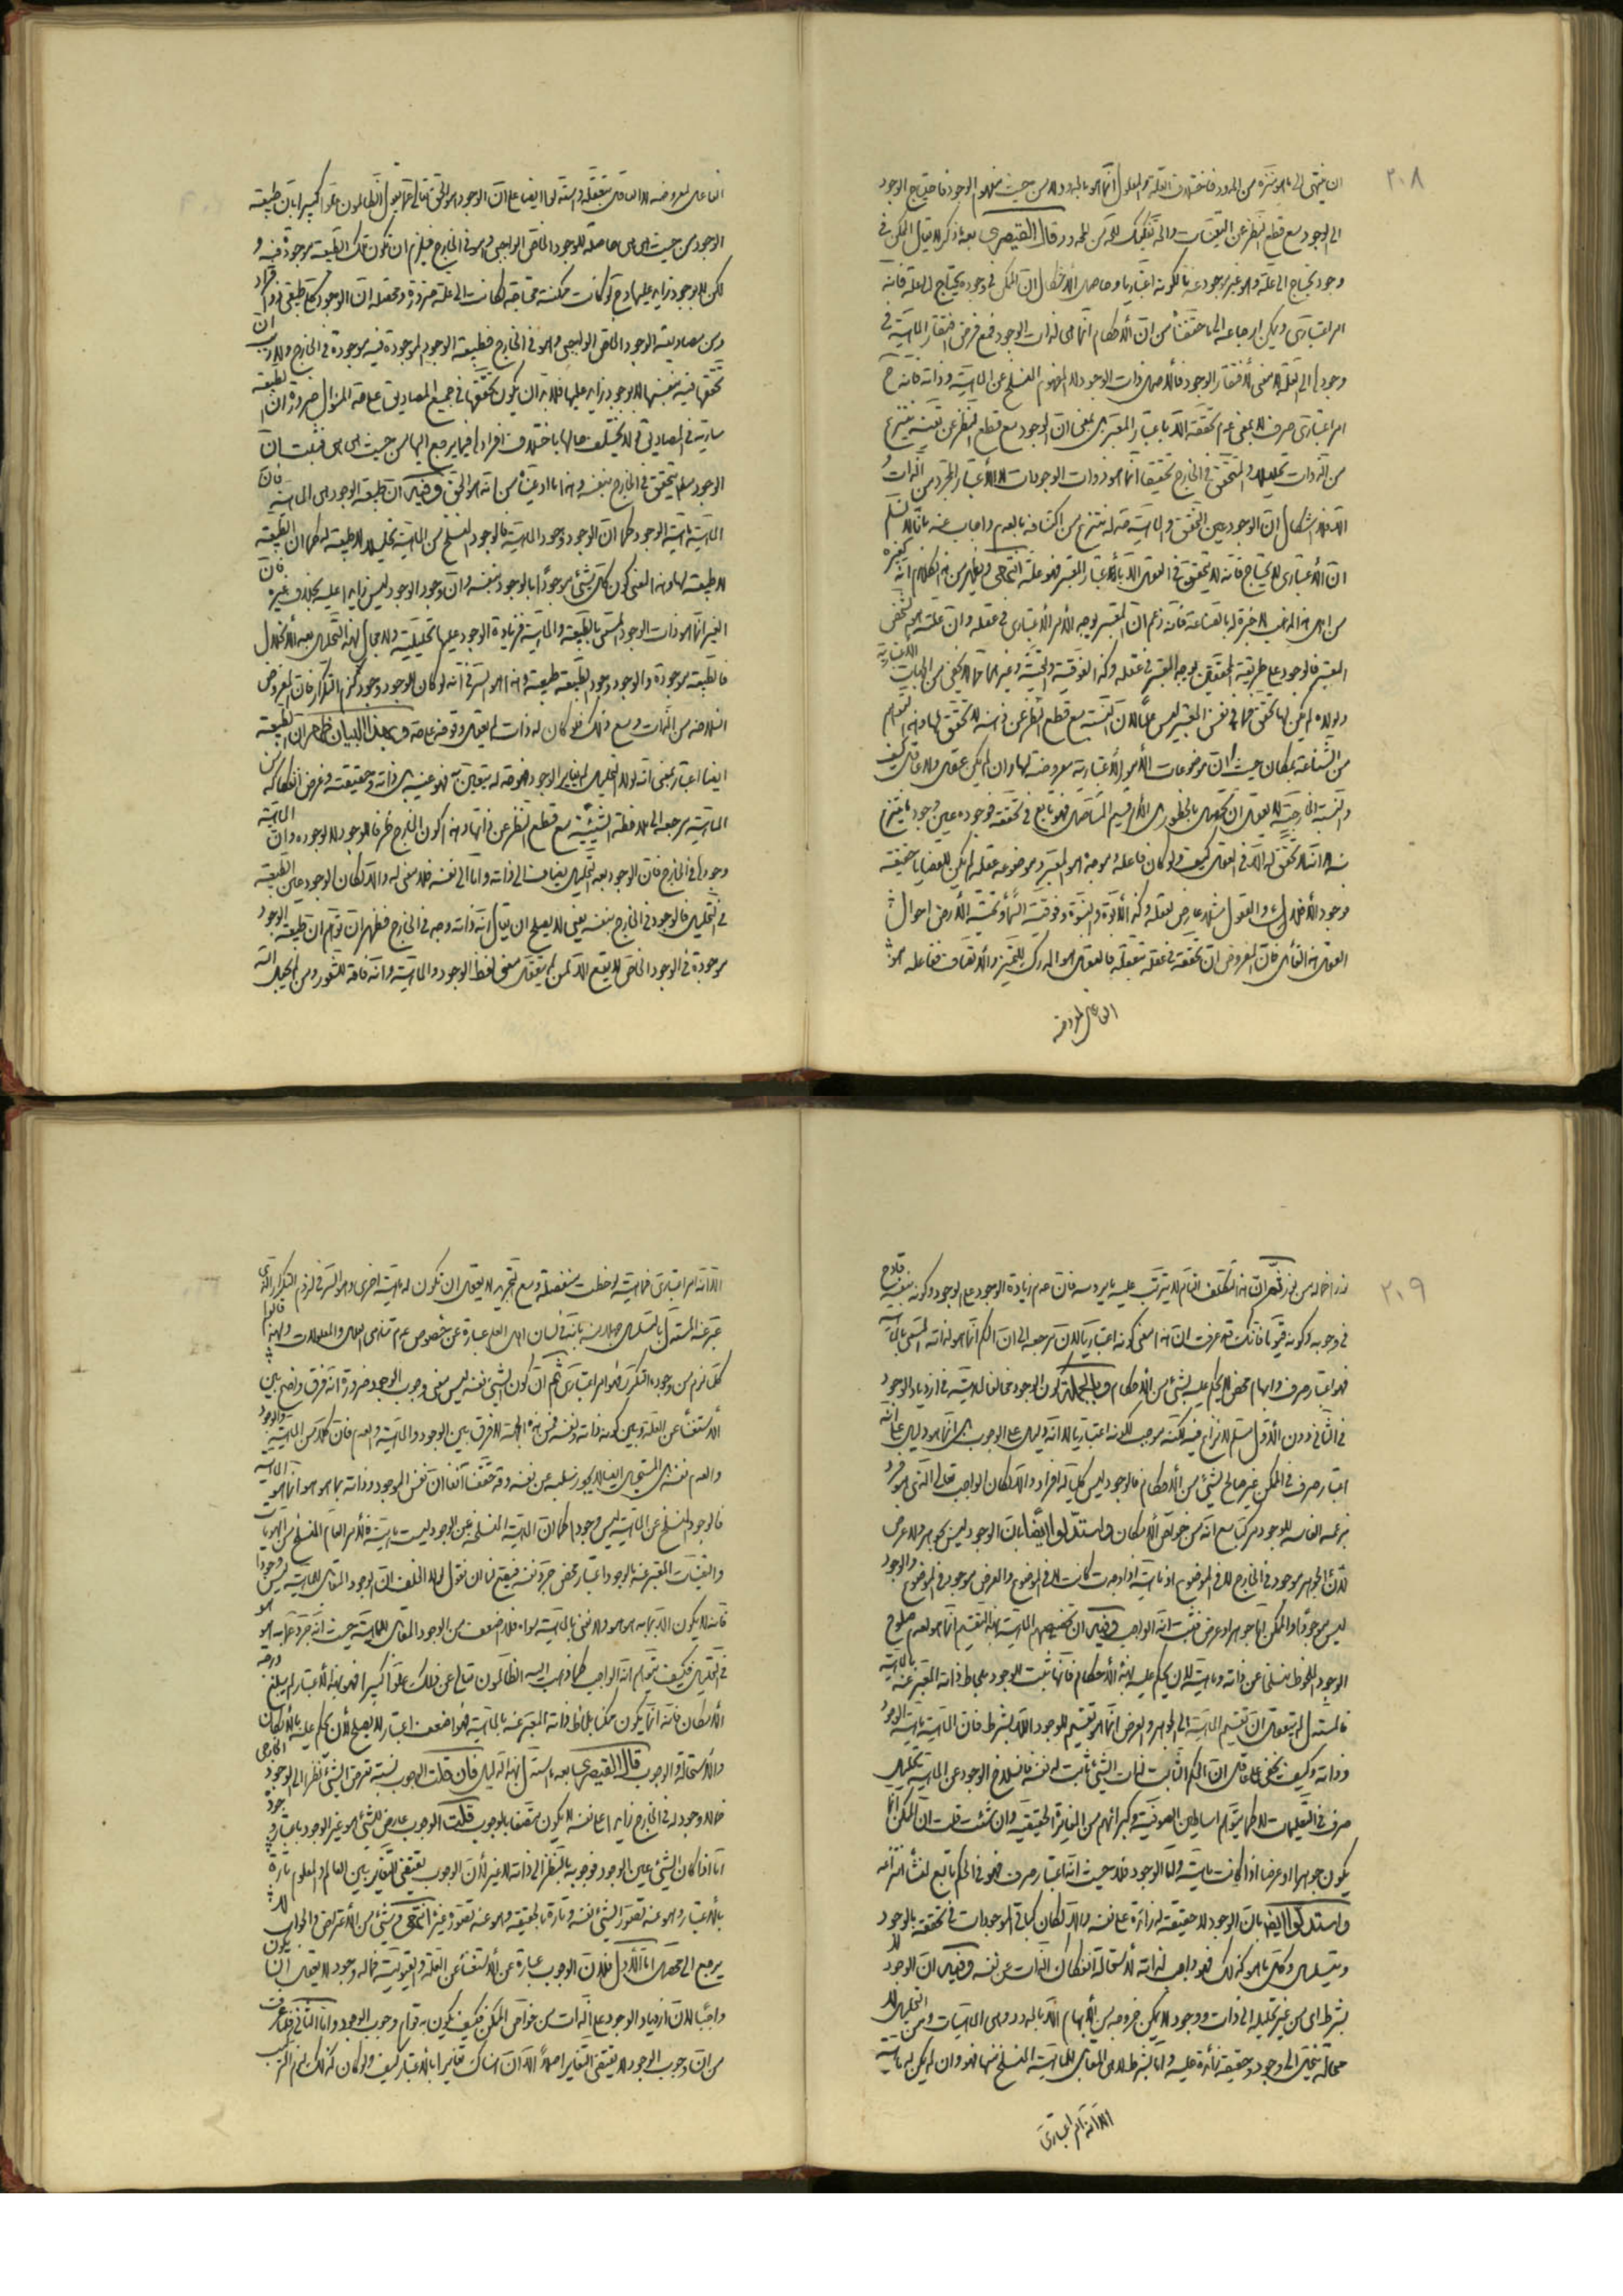 ٢٠٨
ان ينتهى الى ما هو منزه من الحدود فاختلاف العلة والمعلول انما هو بالحدود لا من حيث مفهوم الوجود فاحتياج الوجود
الى الوجود مع قطع النظر عن التعينات والحد تفكيك للحد من المحدود قال القيصرى بعد ما ذكر لا يقال الممكن فى
وجوده يحتاج الى علة وهو غير موجود عندنا لكونه اعتباريا وحاصل الاشكال ان الممكن فى وجوده يحتاج الى العلة فانه
امر اعتبارى ويمكن ارجاعه الى ما حققنا من ان الاحكام انما هى لذات الوجود فمع فرض افتقار الماهية فى
وجودها الى العلة لا معنى لافتقار الوجود
امر اعتبارى صرف لا بمعنى عدم تحققه الا باعتبار المعتبر بل بمعنى ان الوجود مع قطع النظر عن تعينه ينتزع
من الذوات والمتحقق فى الخارج تحقيقا انما هو ذوات الوجودات لا الاعتبار المجرد من الذات
ان الوجود عين التحقق والماهية واجاب عنه بانا لا نسلم
ان الاعتبارى لا يحتاج فانه لا يتحقق فى العقل الا باعتبار المعتبر فهو علة انتهى ويظهر من هذا الكلام انه كغيره
من اهل هذا المذهب لا خبرة له بالصناعة فانه زعم ان المعتبر يوجد الامر الاعتبارى فى عقله وان علته هو الشخص
المعتبر فالوجود على طريقة المحققين يوجد المعتبر فى عقله وكذا الفوقية والتحتية وغيرهما مما لا يخفى من الجهات الاعتبارية
ولولاه لم يكن لها تحقق
من الشناعة بمكان حيث ان موضوعات الامور الاعتبارية معروضة لها وان لم يكن عقل ولا عاقل كيف
والنسبة الخارجية لا يعقل ان تحصل بالخطور بل الامر قيم المتأصل فهو تابع فى تحققه فوجوده عين وجود ما ينتزع
منه لا انه لا تحقق له الا فى العقل كيف ولو كان فاعله وموجده هو المعتبر وموضوعه عقله لم يكن للقضايا حقيقة
والقول عارض لعقله وكذا الابوة والبنوة وفوقية السماء وتحتية الارض احوال
فالعقل هو المدرك للتميز والاتصاف ففاعله هو
العاقل لمعروضه
العاقل لمعروضه لا العاقل بتعقله واستدلوا ايضا على ان الوجود هو الحق تعالى عما يقول الظالمون علوا كبيرا بان طبيعة
الوجود من حيث هى هى حاصلة للوجود الخاص الواجبى وهو فى الخارج فيلزم ان تكون تلك الطبيعة موجودة فيه و
لكن لا بوجود زايد عليها وح لو كانت ممكنة لكانت محتاجة الى علة ضرورة ومحصله ان الوجود كلى طبيعى ذو افراد
ومن مصاديقه الوجود الخاص الواجبى وهو فى الخارج فطبيعة الوجود الموجودة فيه موجودة فى الخارج ولا ريب ان
تحققها فيه بنفسها لا بوجود زايد عليها فلا بد ان يكون تحققها فى جميع المصاديق على هذا المنوال ضرورة ان الطبيعة
سارية فى المصاديق لا يختلف حالها باختلاف افرادها فيما يرجع اليها من حيث هى هى فثبت ان
الوجود مطلقا متحقق فى الخارج بنفسه وهذا ما ادعينا من انه هو الحق وفيه ان طبيعة الوجود هى الماهية فان
الماهية ماهية الوجود كما ان الوجود وجود الماهية فالوجود المنسلخ من الماهية لا طبيعة له كما ان الطبيعة
لا طبيعة لها وهذا معنى كون كل شئ موجودا بالوجود بنفسه وان وجود الوجود ليس زايدا عليه بخلاف غيره فان
الغير انما هو ذات الوجود المسمى بالطبيعة والماهية فزيادة الوجود عليها تحليلية ولا مجال لهذا التحليل بعد الانحلال
فالطبيعة موجودة والوجود وجود الطبيعة طبيعة وهذا هو السر فى انه لو كان للوجود وجود لزم التكرار فان المفروض
انسلاخه من الذات ومع ذلك فلو كان له ذات لم يعقل وقوفه على حد وبهذا البيان ظهر ان الطبيعة
ايضا اعتبار بمعنى انه لولا التحليل لم يغاير الوجود وحقيقته وفرض انفكاكه من
الماهية مرجعه الى ملاحظة الشيئية مع قطع النظر عن ذاتها وهذا كون الخارج ظرفا للوجود لا لوجوده وان الماهية
وجودها فى الخارج فان الوجود بعد التحليل يضاف الى ذاته واما الى نفسه فلا معنى له والا لكان الوجود عين الطبيعة
فى التحليل فالوجود فى الخارج بنفسه يعنى لا يصلح ان يقال انه ذاته وجد فى الخارج فظهر ان توهم ان طبيعة الوجود
موجودة فى الوجود الخاص لا يقع الا ممن لم يتعقل معنى لفظ الوجود والماهية وانه فاقد للشعور ومن لم يجعل الله
٢٠٩
نورا فما له من نور ثم ان هذا التكلف التام لا يترتب عليه ما يرومه فان عدم زيادة الوجود على الوجود وكونه بنفسه قادح
فى وجوبه وكونه قيوما فانك قد عرفت ان هذا معنى كونه اعتباريا لان مرجعه الى ان الحكم انما هو لذاته المسمى بالماهية
فهو اعتبار صرف وابهام محض لا يحكم عليه بشئ من الاحكام وبالجملة كون الوجود مخالفا للماهية فى ازدياد الوجود
فى الثانى دون الاول مسلم لا نزاع فيه لكنه موجب لكونه اعتباريا لا انه دليل على الوجوب بل انما هو دليل على انه
اعتبار صرف فى الممكن غير صالح لشئ من الاحكام فالوجود ليس كليا له افراد والا لكان الواجب تعالى الذى هو فرد
بزعمه الفاسد للوجود مركبا مع انه من خواص الامكان واستدلوا ايضا بان الوجود ليس بجوهر ولا عرض
لان الجوهر موجود فى الخارج لا فى الموضوع او ماهية اذا وجدت كانت لا فى الموضوع والعرض موجود فى الموضوع والوجود
ليس موجودا والممكن اما جوهر او عرض فثبت انه الواجب وفيه ان تخصيصهم الماهية بهذا التقسيم انما هو لعدم صلوح
الوجود الملحوظ منسلخا عن ذاته وماهيته لان يحكم عليه بهذه الاحكام فانها تثبت للوجود بملاحظة ذاته المعبر عنه بالماهية
فالمستدل لم يتعقل ان تقسيم الماهية الى الجوهر والعرض انما هو تقسيم للوجود اللا بشرط فان الماهية ماهية الوجود
وذاته وكيف يخفى على عاقل ان الحكم الثابت لذات الشئ ثابت له نفسه فانسلاخ الوجود عن الماهية تحليلى
صرف فى التعليمات لا كما يتوهم اساطين الصوفية وكبرائهم من المغايرة الحقيقية وان شئت قلت ان الممكن انما
يكون جوهرا او عرضا اذا كانت ماهية واما الوجود فلا حيث انه اعتبار صرف فهو فى الحكم تابع لمنشأ انتزاعه
واستدلوا ايضا بان الوجود لا حقيقة له زائدة على نفسه والا لكان كباقى الموجودات فى تحققه بالوجود
ويتسلسل وكل ما هو كذلك فهو واجب لذاته لاستحالة انفكاك الذات عن نفسه وفيه ان الوجود لا
بشرط اى من غير تحليله الى ذات ووجود لا يمكن خروجه من الابهام الا بالحدود وهى الماهيات ومن التحليل لا
محالة ينحل الى وجود وحقيقة زائدة عليه واما بشرط لا بل المقابل للماهية المنسلخ منها فهو وان لم يكن له ماهية
الا انه امر اعتبارى
الا انه امر اعتبارى فماهيته لوحظت منفصلة ومع التجريد لا يعقل ان تكون له ماهية اخرى وهو السر فى لزوم التكرار الذى
عبر عنه المستدل بالتسلسل جهلا منه بانه فى لسان اهل العلم عبارة عن خصوص عدم تناهى العلل والمعلولات ولهذا قالوا
كل ما لزم من وجوده التكرر فهو امر اعتبارى ثم ان كون الشئ نفسه ليس معنى وجوب الوجود ضرورة انه فرق واضح بين
الاستغناء عن العلة وبين كونه ذاته ونفسه فمن هذه الجهة لا فرق بين الوجود والماهية والعدم فان كلا من الماهية والوجود
والعدم نفسه بل المستحيل ايضا لا يجوز سلبه عن نفسه وقد حققنا آنفا ان نفس الوجود وذاته بما هو هو انما هو الماهية
فالوجود المنسلخ عن الماهية ليس وجودا كما ان الماهية المنسلخة عن الوجود ليست ماهية فالامر العام المنسلخ من الهويات
والتعينات المعبر عنه بالوجود اعتبار محض جرد نفسه فيصح لنا ان نقول لولا الخلف ان الوجود المقابل للماهية ليس وجودا
فانه لا يكون الا بما به هو هو ولا نعنى بالماهية سواه فلا اضعف من الوجود المقابل للماهية حيث انه جرد عما به هو هو
فى التحليل فكيف يتوهم انه الواجب كما ذهب اليه الظالمون تعالى عن ذلك علوا كبيرا فهو بهذا الاعتبار لم يبلغ درجة
الامكان فانه انما يكون ممكنا بلحاظ ذاته المعبر عنه بالماهية فهو اضعف اعتبار لا يصلح لان يحكم عليه بالامكان
والاستحالة والوجوب قال القيصرى بعد ما استدل بهذا الدليل فان قلت الوجوب نسبة تعرض الشئ نظرا الى الوجود الخارجى
فما لا وجود له فى الخارج زايدا على نفسه لا يكون متصفا بالوجوب قلت الوجوب عارض للشئ هو غير الوجود باعتبار وجوده
اما اذا كان الشئ عين الوجود فوجوبه بالنظر الى ذاته لا غير لان الوجوب يقتضى التغاير بين العالم والمعلوم تارة
بالاعتبار وهو عند تصور الشئ نفسه وتارة بالحقيقة وهو عند تصور غيره انتهى وشئ من الاعتراض والجواب لا
يرجع الى محصل اما الاول فلان الوجوب عبارة عن الاستغناء عن العلة والقيومية فما له وجود لا يعقل ان يكون
واجبا لان ازدياد الوجود على الذات من خواص الممكن فكيف يكون به قوام وجوب الوجود واما الثانى فلما عرفت
من ان وجوب الوجود لا يقتضى التغاير اصلا الا ان هناك تغايرا بالاعتبار كيف ولو كان كذلك لزم التركيب